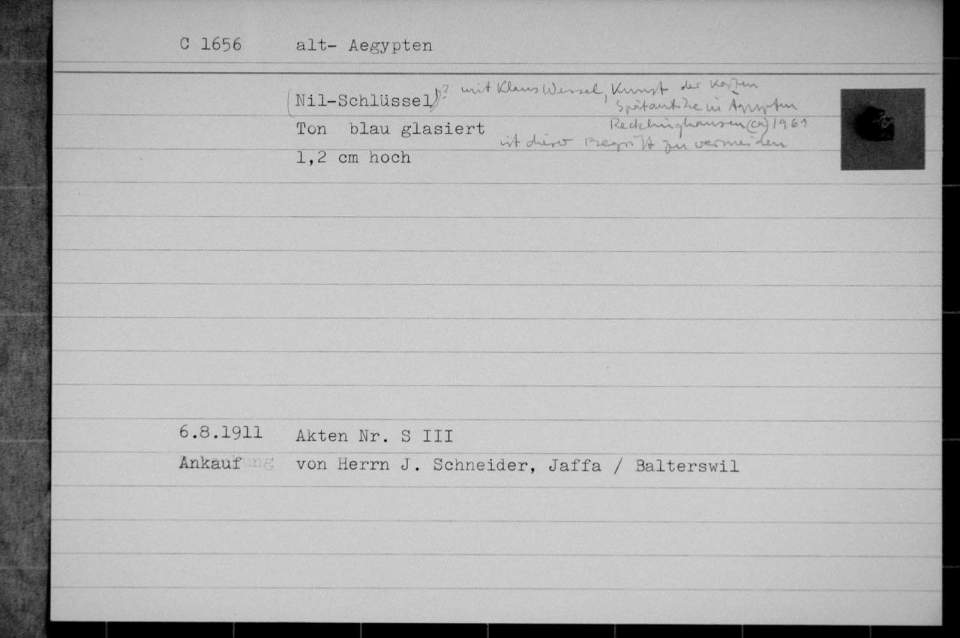 C 1656 alt- Aegypten
(Nil-Schlüssel)? mit Klaus Wessel, Kunst der Kopten
Spätantike in Ägypten
Ton blau glasiert Recklinghausen 1961
ist dieser Begriff zu vermeiden
1,2 cm hoch
6.8.1911 Akten Nr. S III
Ankauf von Herrn J. Schneider, Jaffa / Balterswil